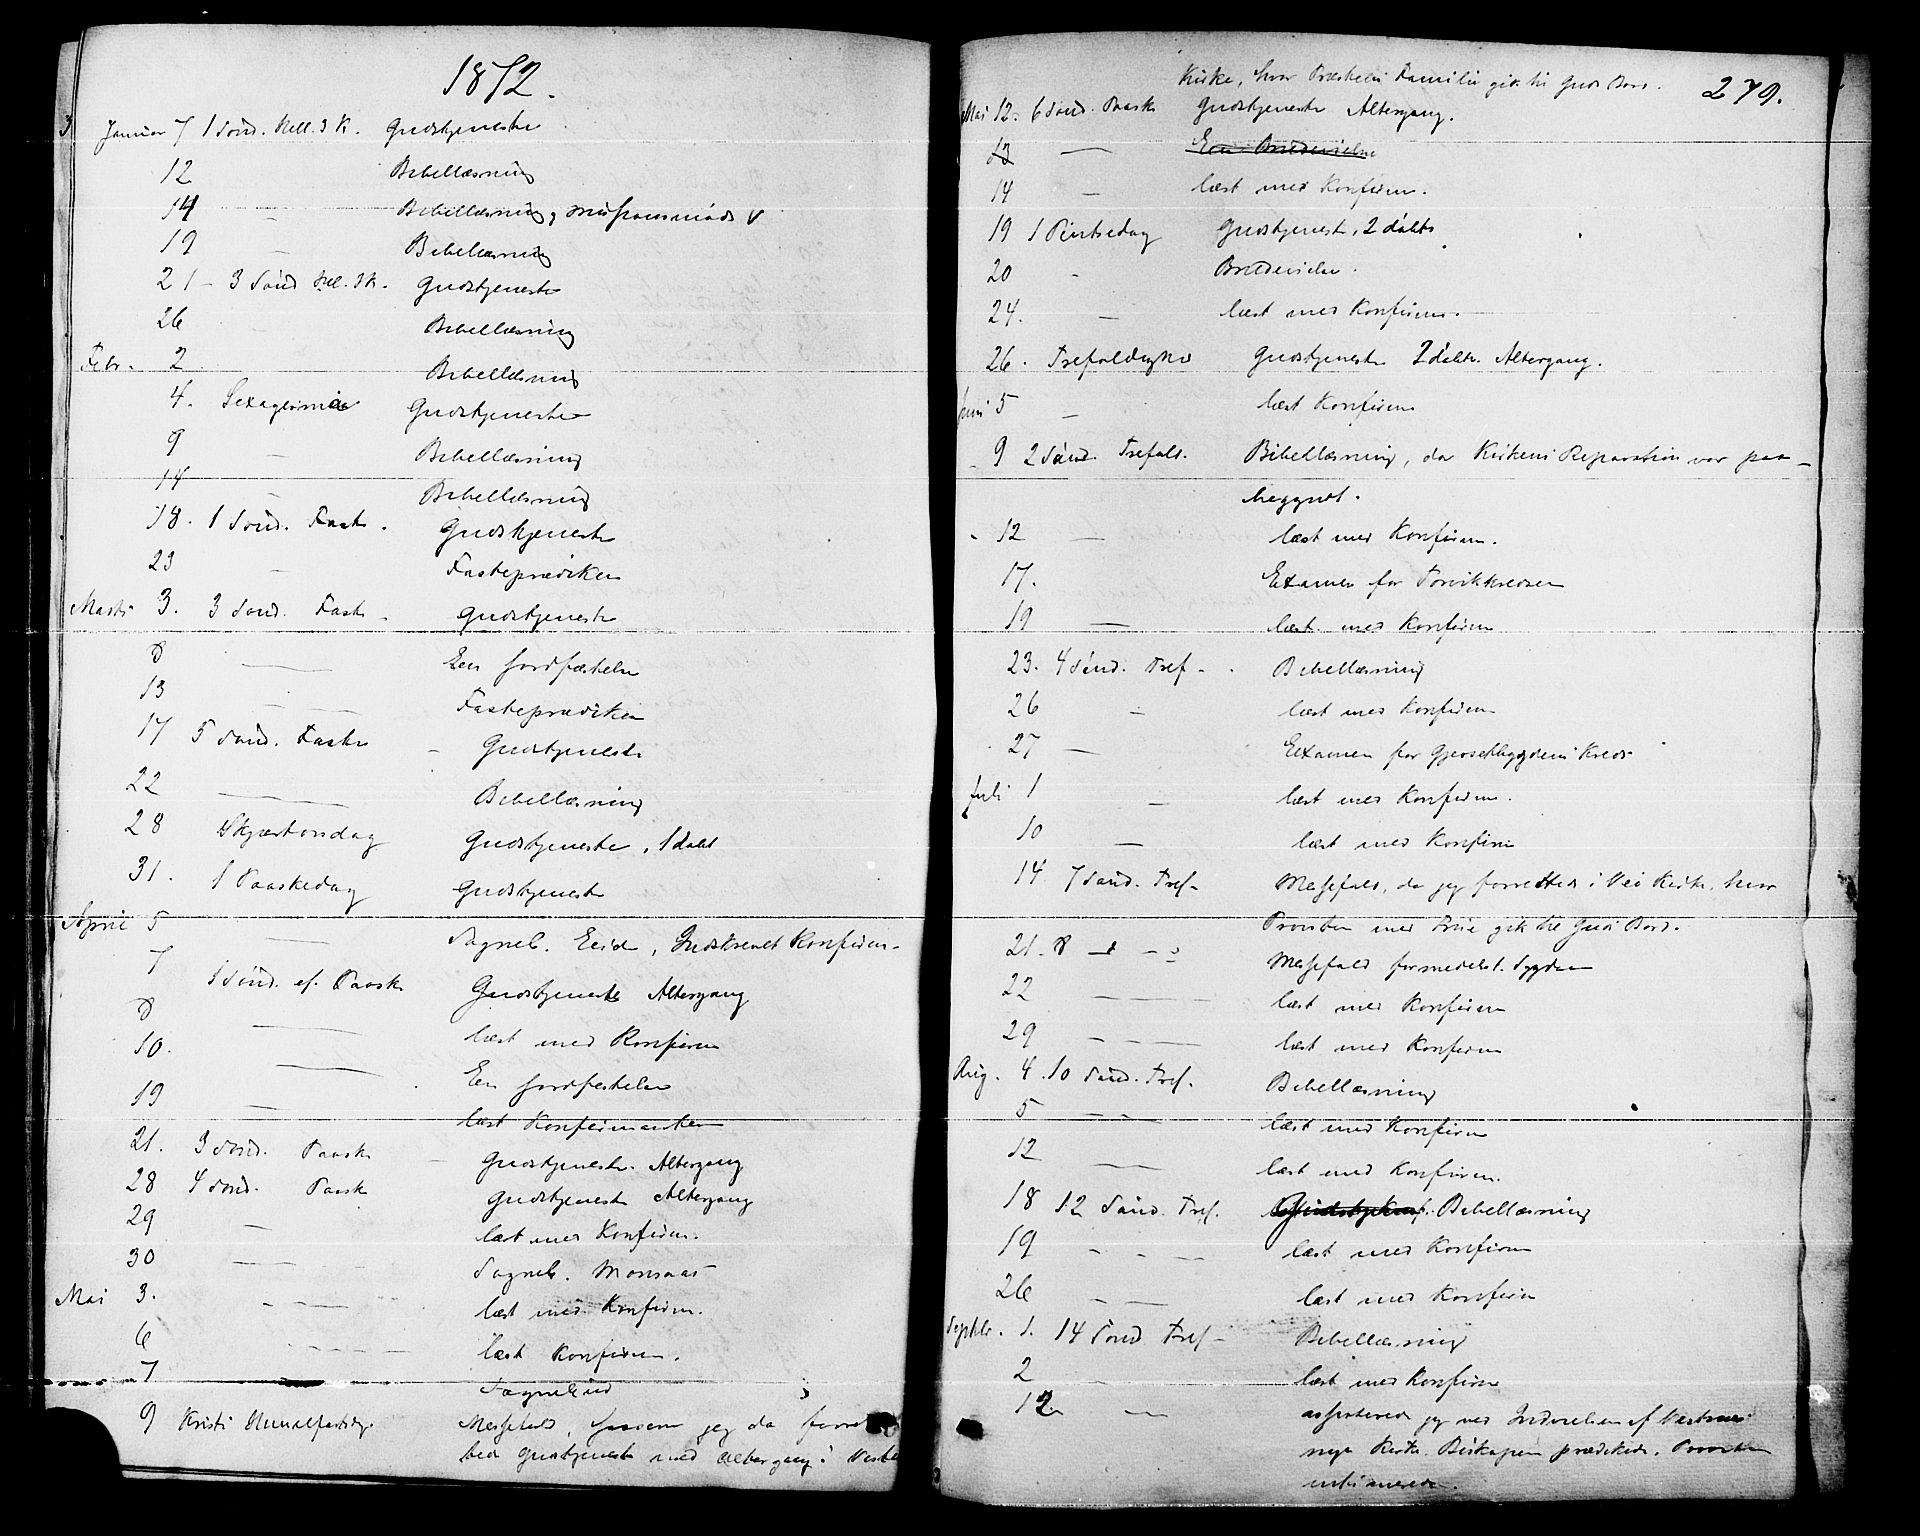 1872.
Januar 7 1 Sønd. Hell. 3 K. Gudstjeneste
12 Bibellæsning
14 — Bibellæsning,
19 — Bibellæsning
21 – 3 Sønd Hel. 3 K. Gudstjeneste
26 — Bibellæsning
Febr. 2 Bibellæsning
4. Sexagesima Gudstjeneste
9 — Bibellæsning
14 — Bibellæsning
18. 1 Sønd. Faste. Gudstjeneste
23 — Fasteprædiken
Marts 3. 3 Sønd. Faste – Gudstjeneste
8 — Een Jordfæstelse
13 — Fasteprædiken
17 5 Sønd. Faste – Gudstjeneste
22 — Bibellæsning
28 Skjærtorsdag Gudstjeneste, 1 døbt
31. 1 Paaskedag Gudstjeneste
April 5 — Sogneb. Eeid, Indskrevet Konfirm.
7 1 Sønd. ef. Paaske Gudstjeneste Altergang
8 — læst med Konfirm
10. — Een Jordfestelse
19 — læst Konfirmanten
21. 3 Sønd. Paaske – Gudstjeneste. Altergang
28 4 Sønd. Paaske Gudstjeneste Altergang
29 — læst med Konfirm.
30 — Sogneb. Monsaas
Mai 3. — læst med Konfirm.
6 — læst Konfirm.
7 — Sognebud
9 Kristi Himmelfartsdg. Messefald, jeg da forret
tede Gudstjeneste med Altergang i
279.
Kirke, hvor Familie gik til Guds Bord.
Mai 12. 6 Sønd. Paaske Gudstjeneste Altergang.
13 — Een Brudevielse
14 — læst med Konfirm.
19 1 Pintsedag Gudstjeneste, 2 døbte
20 - Brudevielse.
24. — læst med Konfirm.
26. Trefoldighed Gudstjeneste 2 døbte. Altergang.
Juni 5 — læst Konfirm
- 9 2 Sønd. Trefold. Bibellæsning, da Kirkens Reparation var paa-
begyndt.
- 12 — læst med Konfirm.
17. Examen for Torvikkredsen
19 — læst med Konfirm
23. 4 Sønd. Tref - . Bibellæsning
26 — læst med Konfirm
27 — Examen for Gjersetbygdens Kreds
Juli 1 — læst med Konfirm.
10 — læst med Konfirm
14 7 Sønd. Tref- Messefald, da jeg forrettede i Vei Kirke, hvor
Provsten med Frue gik til Guds Bord.
21. 8 — - - Messefald formedelst Sygdom
22 — læst med Konfirm
29 — læst med Konfirm
Aug. 4. 10 Sønd. Tref. Bibellæsning
5 — læst med Konfirm
12 — læst med Konfirm.
18 12 Sønd. Tref. Bibellæsning
19 — læst med Konfirm
26 — læst med Konfirm
Septbr. 1. 14 Sønd Tref – Bibellæsning
2 — læst med Konfirm
12 — assisterede jeg ved Indvielsen af Vestnes
nye Kirke. Biskopen prædikede. Provsten
intimerede.